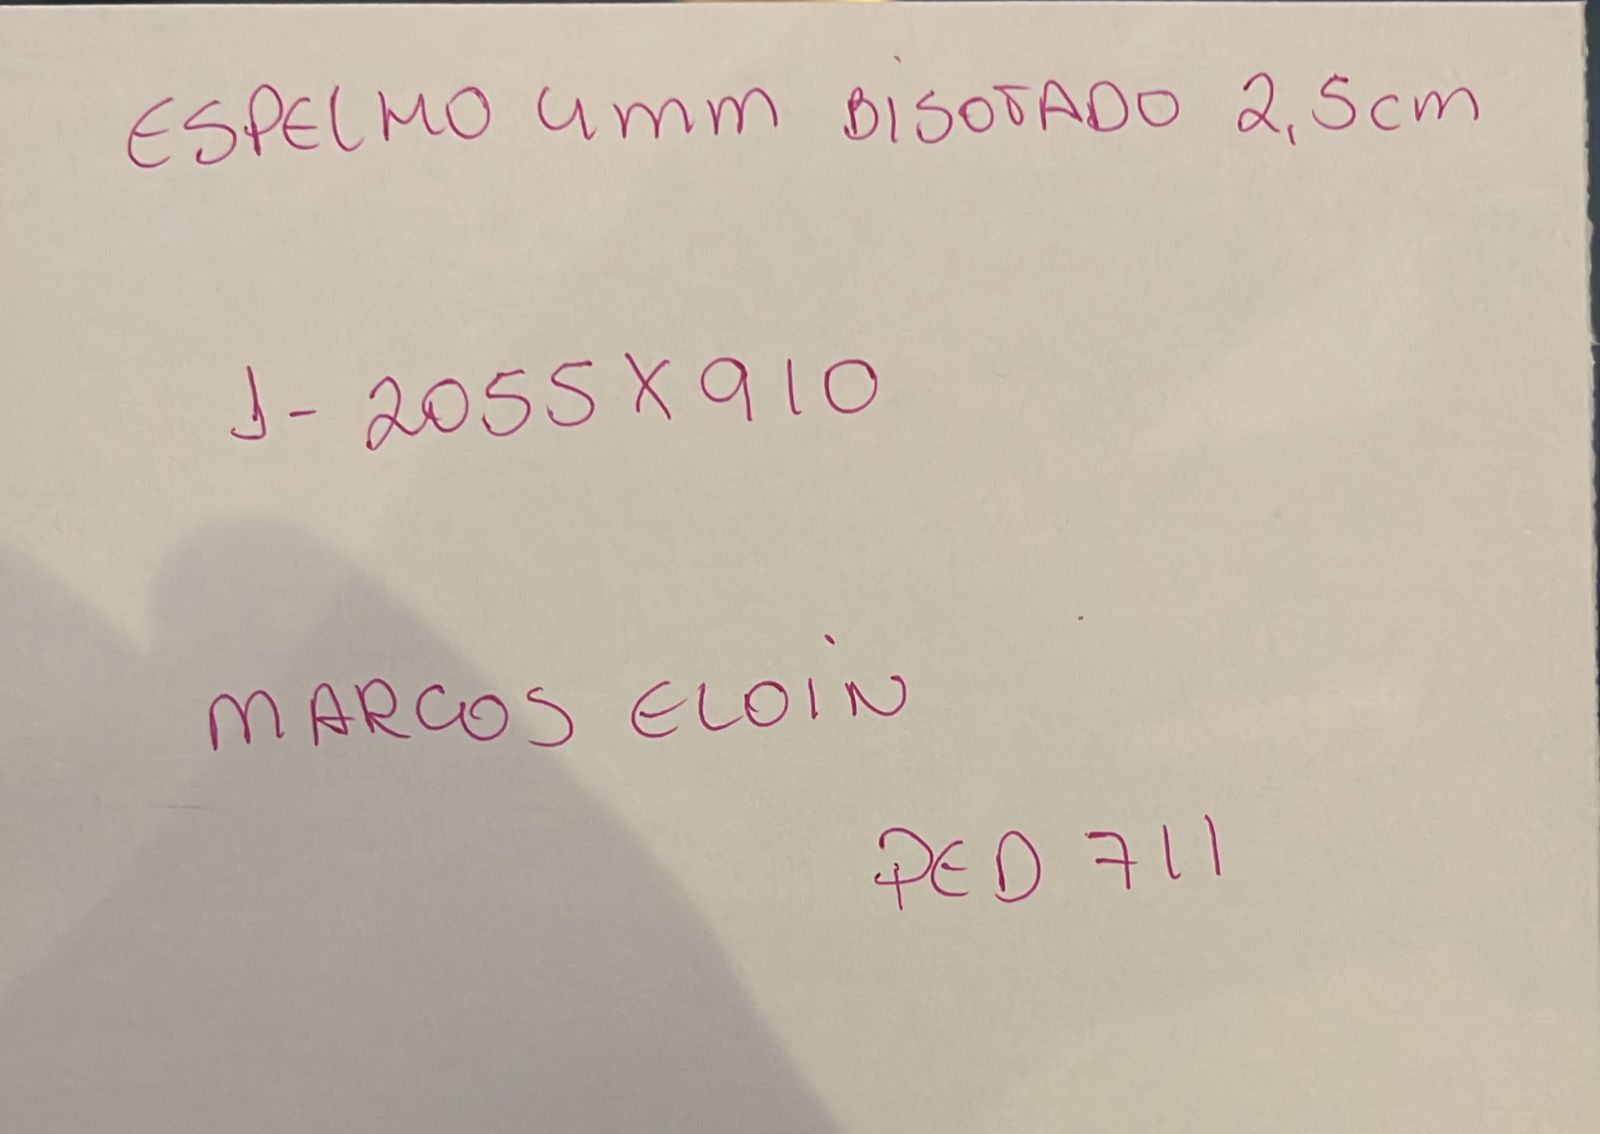 ESPELHO 4mm BISOTADO 2,5cm
1- 2055X910
MARCOS ELOIN
PED 711